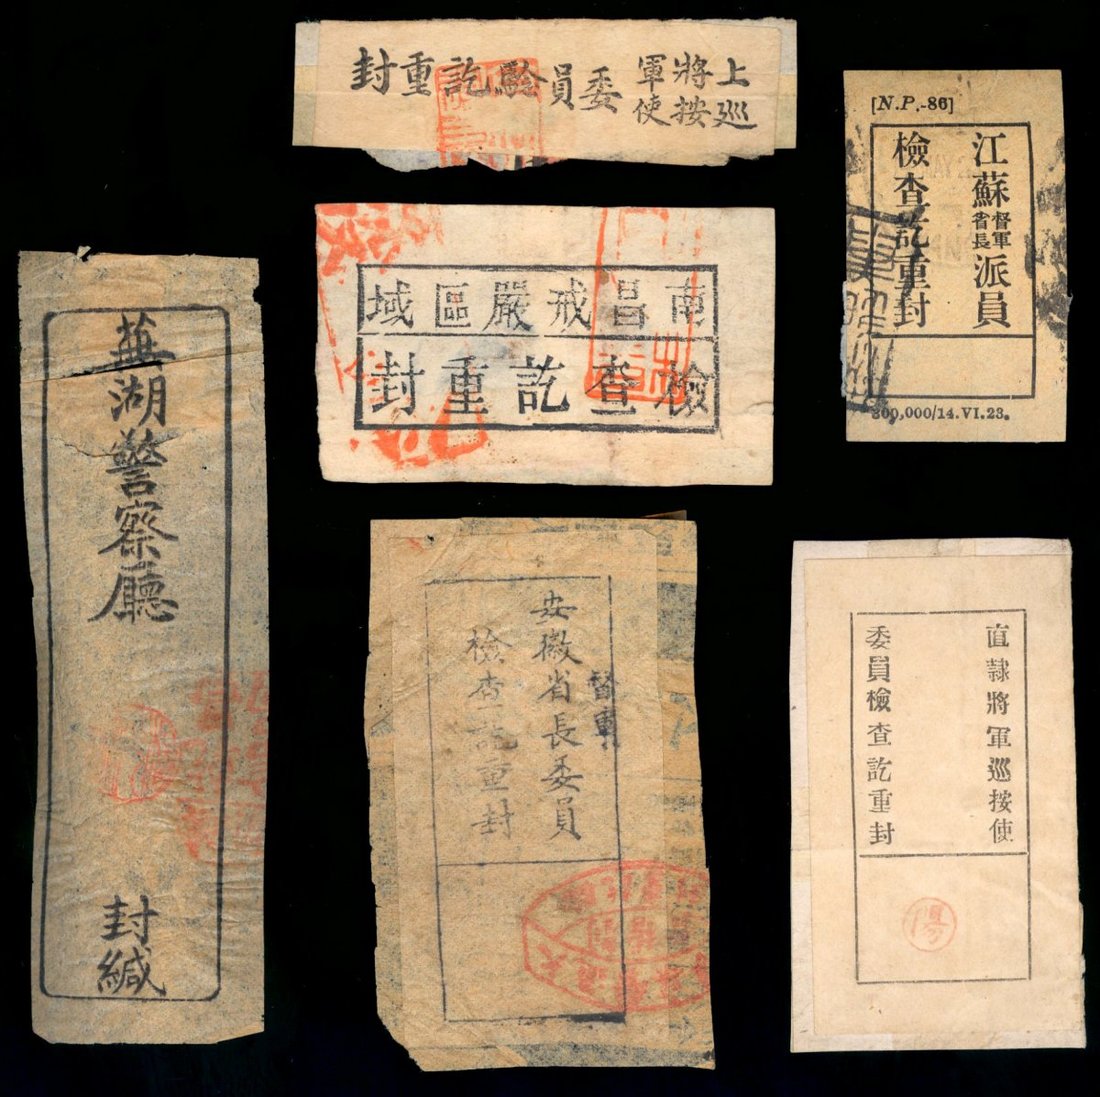 上將軍
巡按使
委員驗訖重封
[N.P.-86]
江蘇督軍省長派員
檢查訖重封
300,000/14.VI.23.
南昌戒嚴區域
檢查訖重封
蕪湖警察廳
封緘
安徽督軍省長委員
檢查訖重封
直隸將軍巡按使
委員檢查訖重封
陽